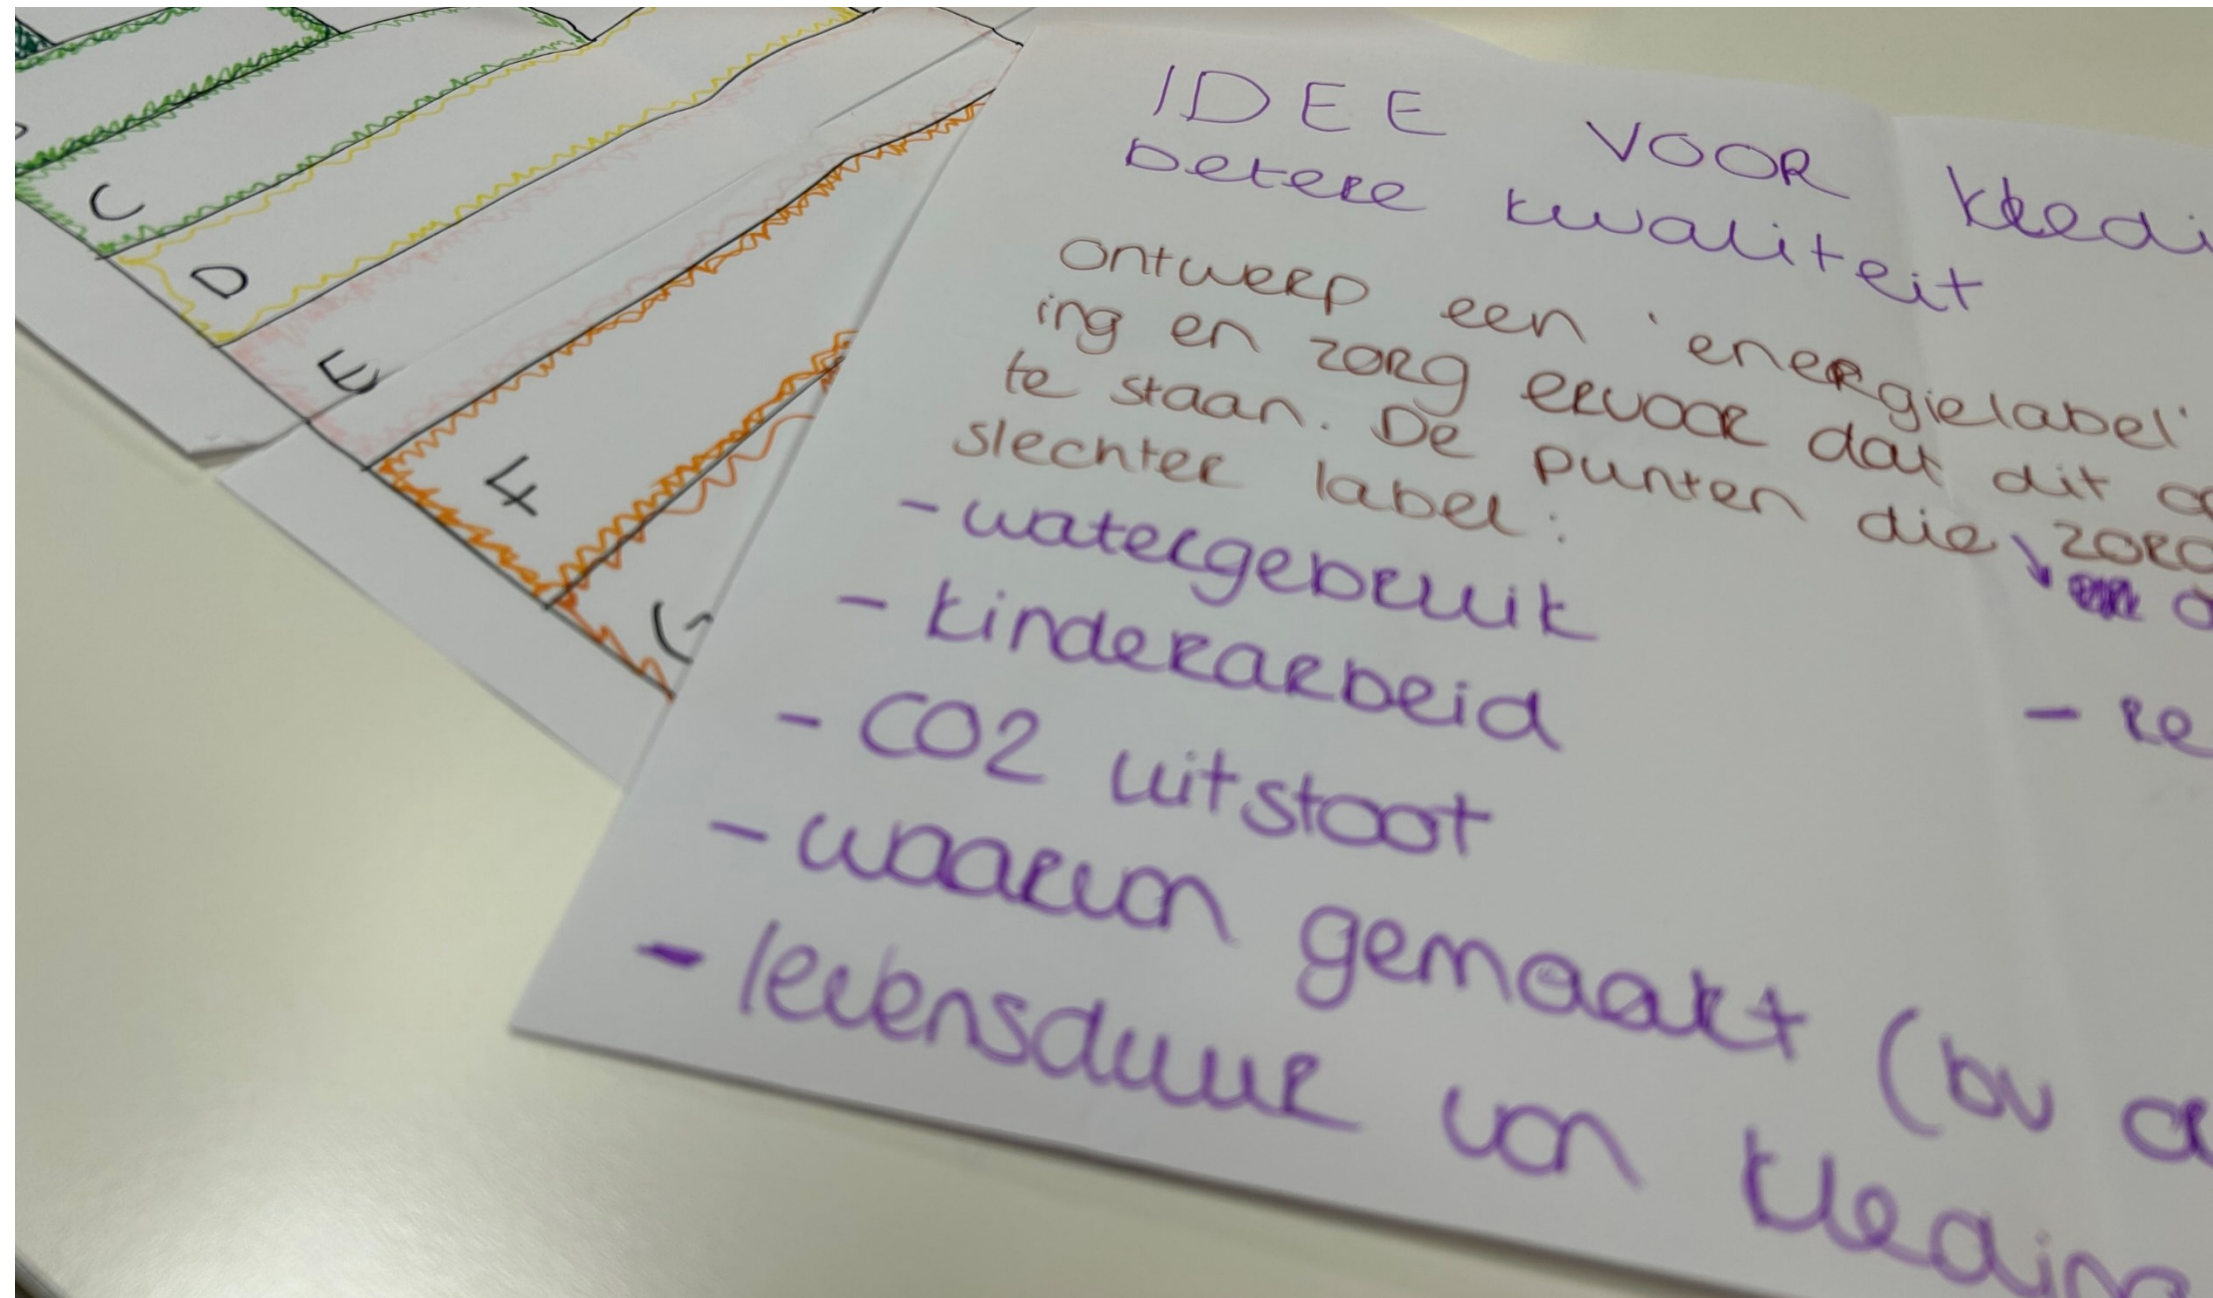 C
D
E
F
G
IDEE VOOR kledi
betere kwaliteit
Ontwerp een 'energielabel'
ing en zorg ervoor dat dit
te staan. De punten die zorg
slechter label:
- watergebruik
- kinderarbeid
- CO2 uitstoot
- waarvan gemaakt (bv
- levensduur van kleding
- re